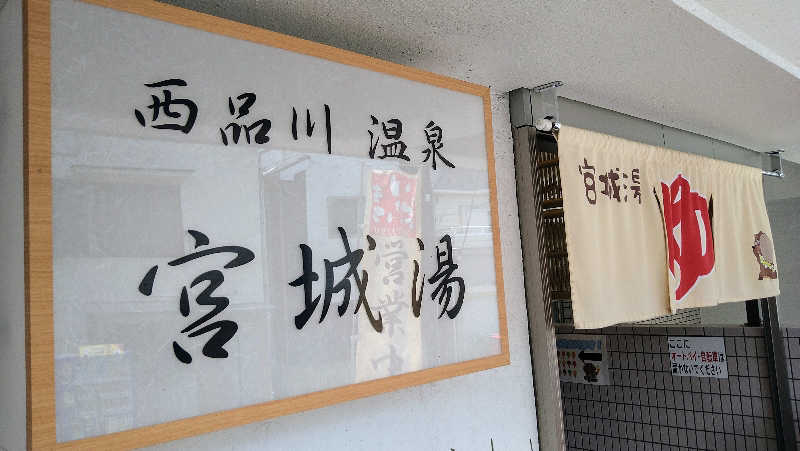 西品川 温泉
宮城湯
営業中
宮城湯
ゆ
ここに
オートバイ・自転車は
置かないでください